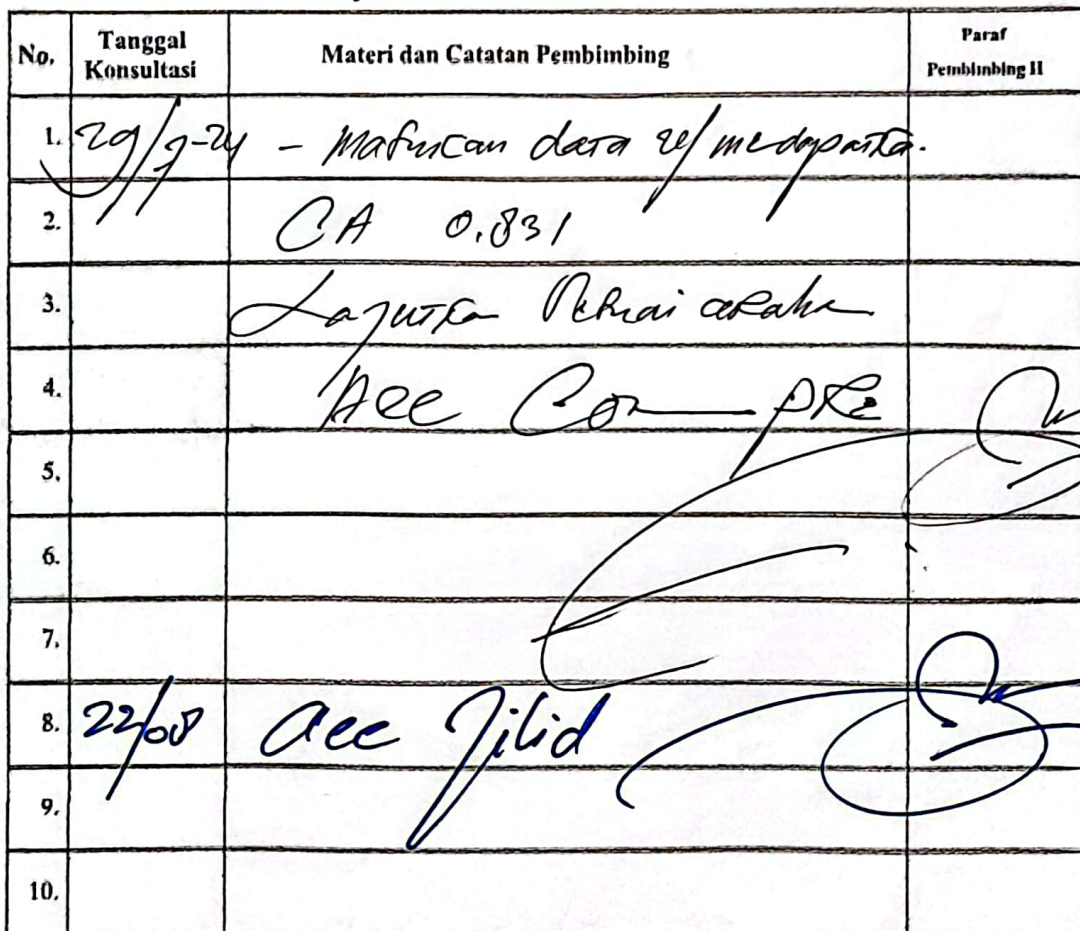 No. Tanggal Konsultasi Materi dan Catatan Pembimbing Paraf Pembimbing II
1. 29/7-24 - Masukan data u/
2. CA 0.831
3. Lanjutkan
4. Acc Compre
5.
6.
7.
8. 22/08 acc Jilid
9.
10.